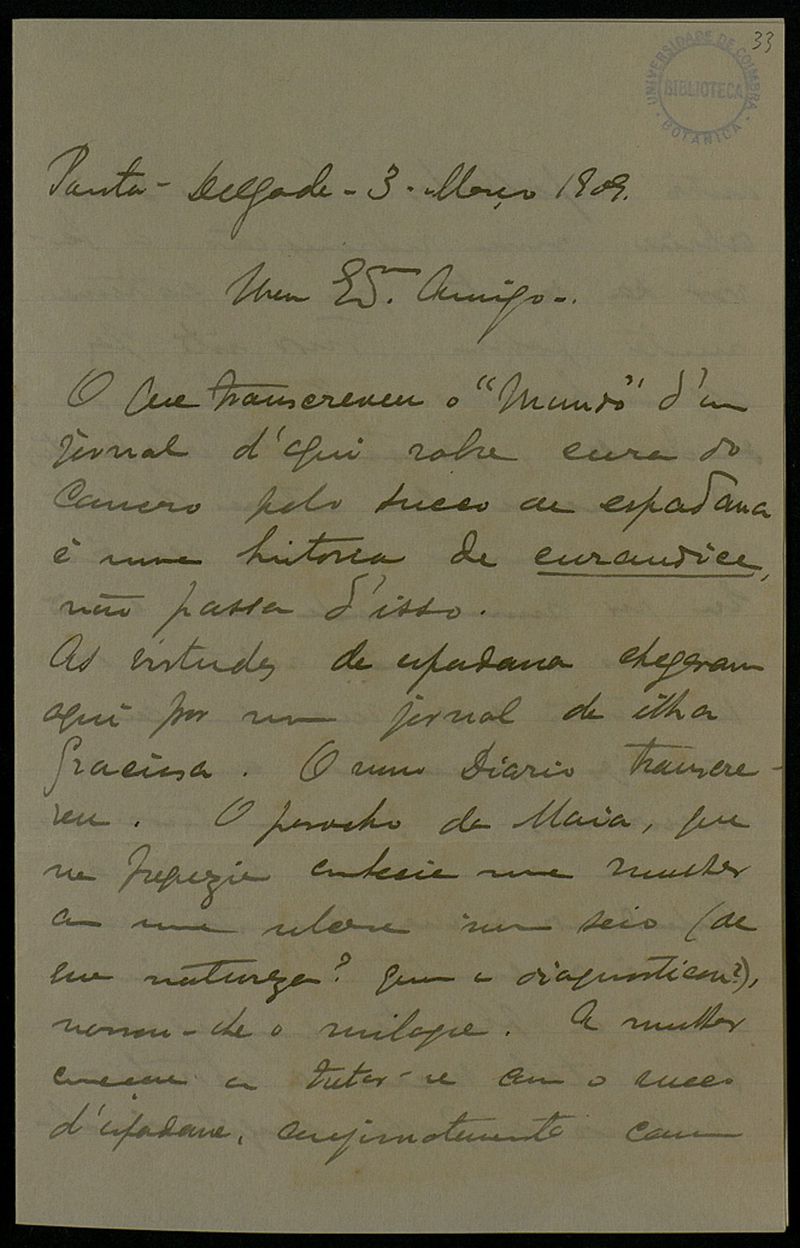 33
UNIVERSIDADE DE COIMBRA
BIBLIOTECA
BOTANICA
Ponta-Delgada-3-Março 1909.
Meu Ex.mo Amigo-.
O que transcreveu o "Mundo" d'um
jornal d'aqui sobre cura do
Cancro pelo succo de espadana
é uma historia de curandice,
não passa d'isso.
As virtudes da espadana chegaram
aqui por um jornal da ilha
Graciosa. O meu Diario transcre-
veu. O parocho da Maia, que
na freguezia conhecia uma mulher
com uma ulcera num seio (de
sua natureza? quem a diagnosticou?),
o milagre. A mulher
começou a tratar-se com o succo
d'espadana, conjunctamente com